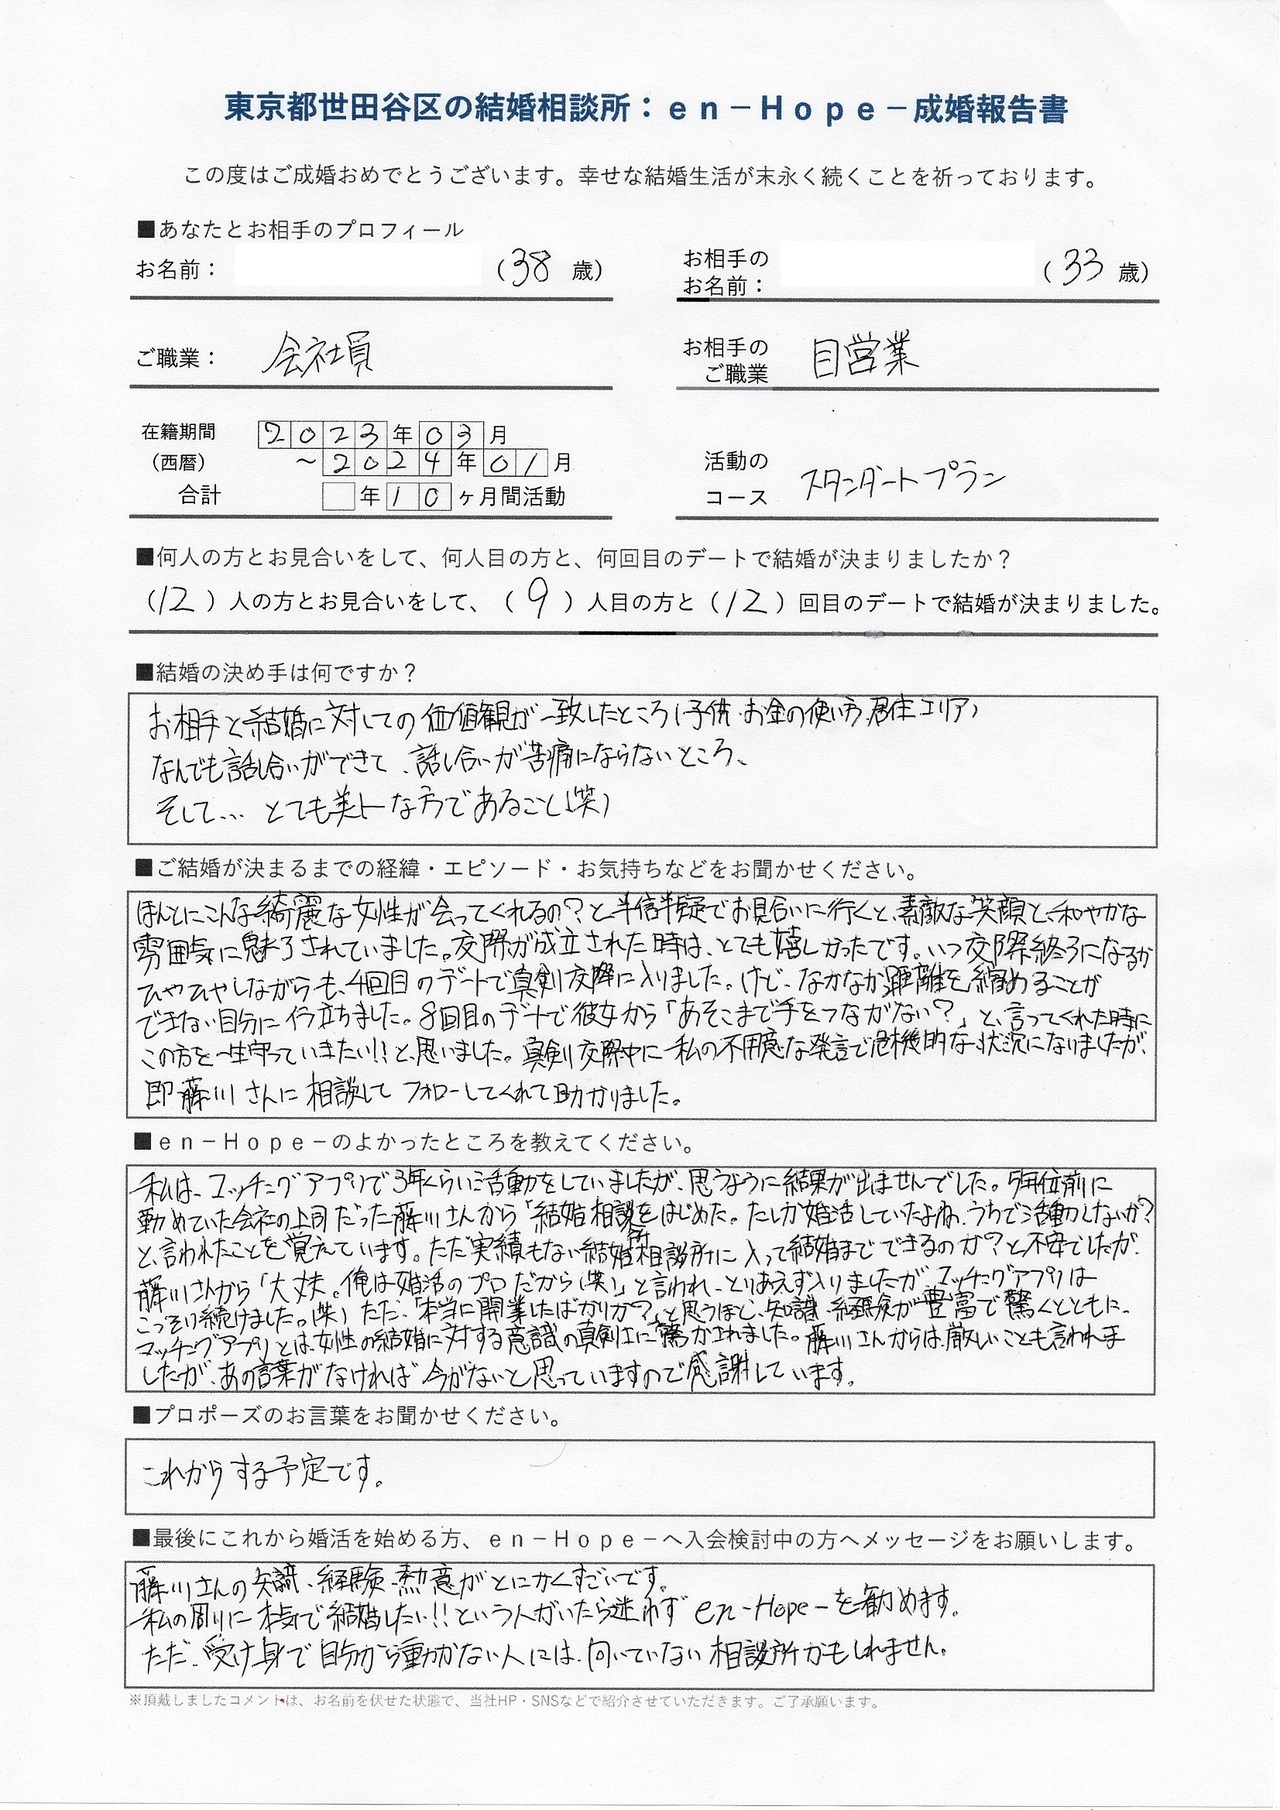 東京都世田谷区の結婚相談所：ｅｎ－Ｈｏｐｅ－成婚報告書
この度はご成婚おめでとうございます。幸せな結婚生活が末永く続くことを祈っております。
■あなたとお相手のプロフィール
お名前： （38 歳） お相手の お名前： （33 歳）
ご職業： 会社員 お相手の ご職業 自営業
在籍期間 2023年03月
（西暦） ～2024年01月
合計 年10ヶ月間活動
活動の コース スタンダートプラン
■何人の方とお見合いをして、何人目の方と、何回目のデートで結婚が決まりましたか？
（12）人の方とお見合いをして、（9）人目の方と（12）回目のデートで結婚が決まりました。
■結婚の決め手は何ですか？
お相手と結婚に対しての価値観が一致したところ（子供・お金の使い方、居住エリア）
なんでも話し合いができて、話し合いが苦痛にならないところ、
そして… とても美人な方であること（笑）
■ご結婚が決まるまでの経緯・エピソード・お気持ちなどをお聞かせください。
ほんとにこんな綺麗な女性が会ってくれるの？と半信半疑でお見合いに行くと、素敵な笑顔と和やかな
雰囲気に魅了されていました。交際が成立された時は、とても嬉しかったです。いつ交際終了になるか
ひやひやしながらも、4回目のデートで真剣交際に入りました。けど、なかなか距離を縮めることが
できない自分にイラ立ちました。8回目のデートで彼女から「あそこまで手をつながない？」と、言ってくれた時に
この方を一生守っていきたい!!と思いました。真剣交際中に私の不用意な発言で危機的な状況になりましたが、
即藤川さんに相談してフォローしてくれて助かりました。
■ｅｎ－Ｈｏｐｅ－のよかったところを教えてください。
私は、マッチングアプリで3年くらい活動をしていましたが、思うように結果が出ませんでした。5年位前に
勤めていた会社の上司だった藤川さんから「結婚相談所をはじめた。たしか婚活していたよね、うちで活動しないか？
と、言われたことを覚えています。ただ実績もない結婚相談所に入って結婚までできるのか？と不安でしたが、
藤川さんから「大丈夫。俺は婚活のプロだから（笑）」と言われ、とりあえず入りましたがマッチングアプリは
こっそり続けました。（笑）ただ、「本当に開業したばかりか？」と思うほど、知識、経験が豊富で驚くとともに、
マッチングアプリとは、女性の結婚に対する意識の真剣士に驚かされました。藤川さんからは、厳しいことも言われま
したが、あの言葉がなければ今がないと思っていますので感謝しています。
■プロポーズのお言葉をお聞かせください。
これからする予定です。
■最後にこれから婚活を始める方、ｅｎ－Ｈｏｐｅ－へ入会検討中の方へメッセージをお願いします。
藤川さんの知識、経験、熱意がとにかくすごいです。
私の周りに本気で結婚したい!!という人がいたら迷わずen-Hope-を勧めます。
ただ、受け身で自分から動かない人には、向いていない相談所かもしれません。
※頂戴しましたコメントは、お名前を伏せた状態で、当社HP・SNSなどで紹介させていただきます。ご了承願います。